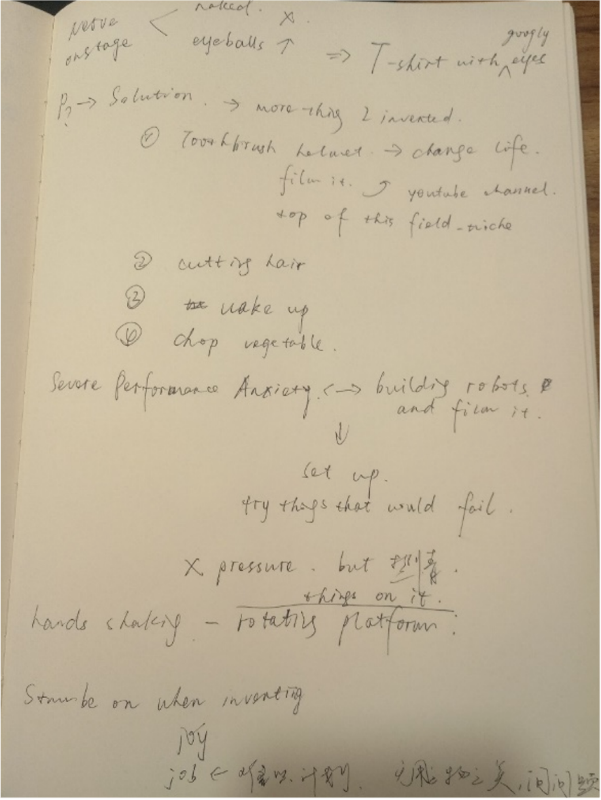 Nerve
onstage
naked. X.
eyeballs ↑
⇒ T-shirt with googly eyes
P? → Solution. → more thing I invented.
① Toothbrush helmet → change life.
film it. youtube channel.
top of this field - niche
② cutting hair
③ wake up
④ chop vegetable.
Severe Performance Anxiety. ↔ building robots
and film it.
↓
set up.
try things that would fail.
X pressure. but
things on it.
hands shaking - rotating platform:
on when inventing
joy
job ← 计划. 无用之物之美, 问问题